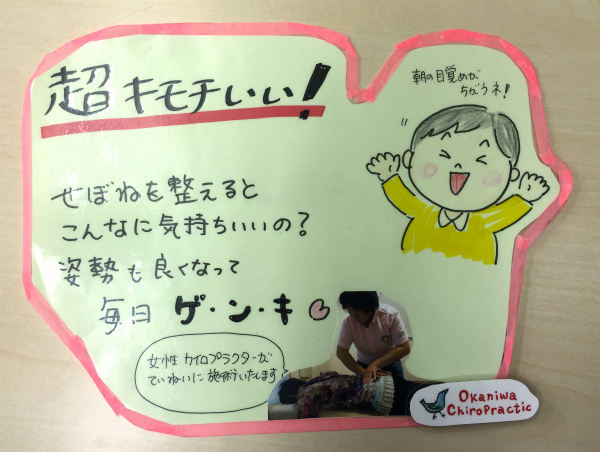 超キモチいい!
朝の目覚めが
ちがうネ!
せぼねを整えると
こんなに気持ちいいの?
姿勢も良くなって
毎日 ゲ・ン・キ♡
女性カイロプラクターが
ていねいに施術いたします
Okaniwa
ChiroPractic